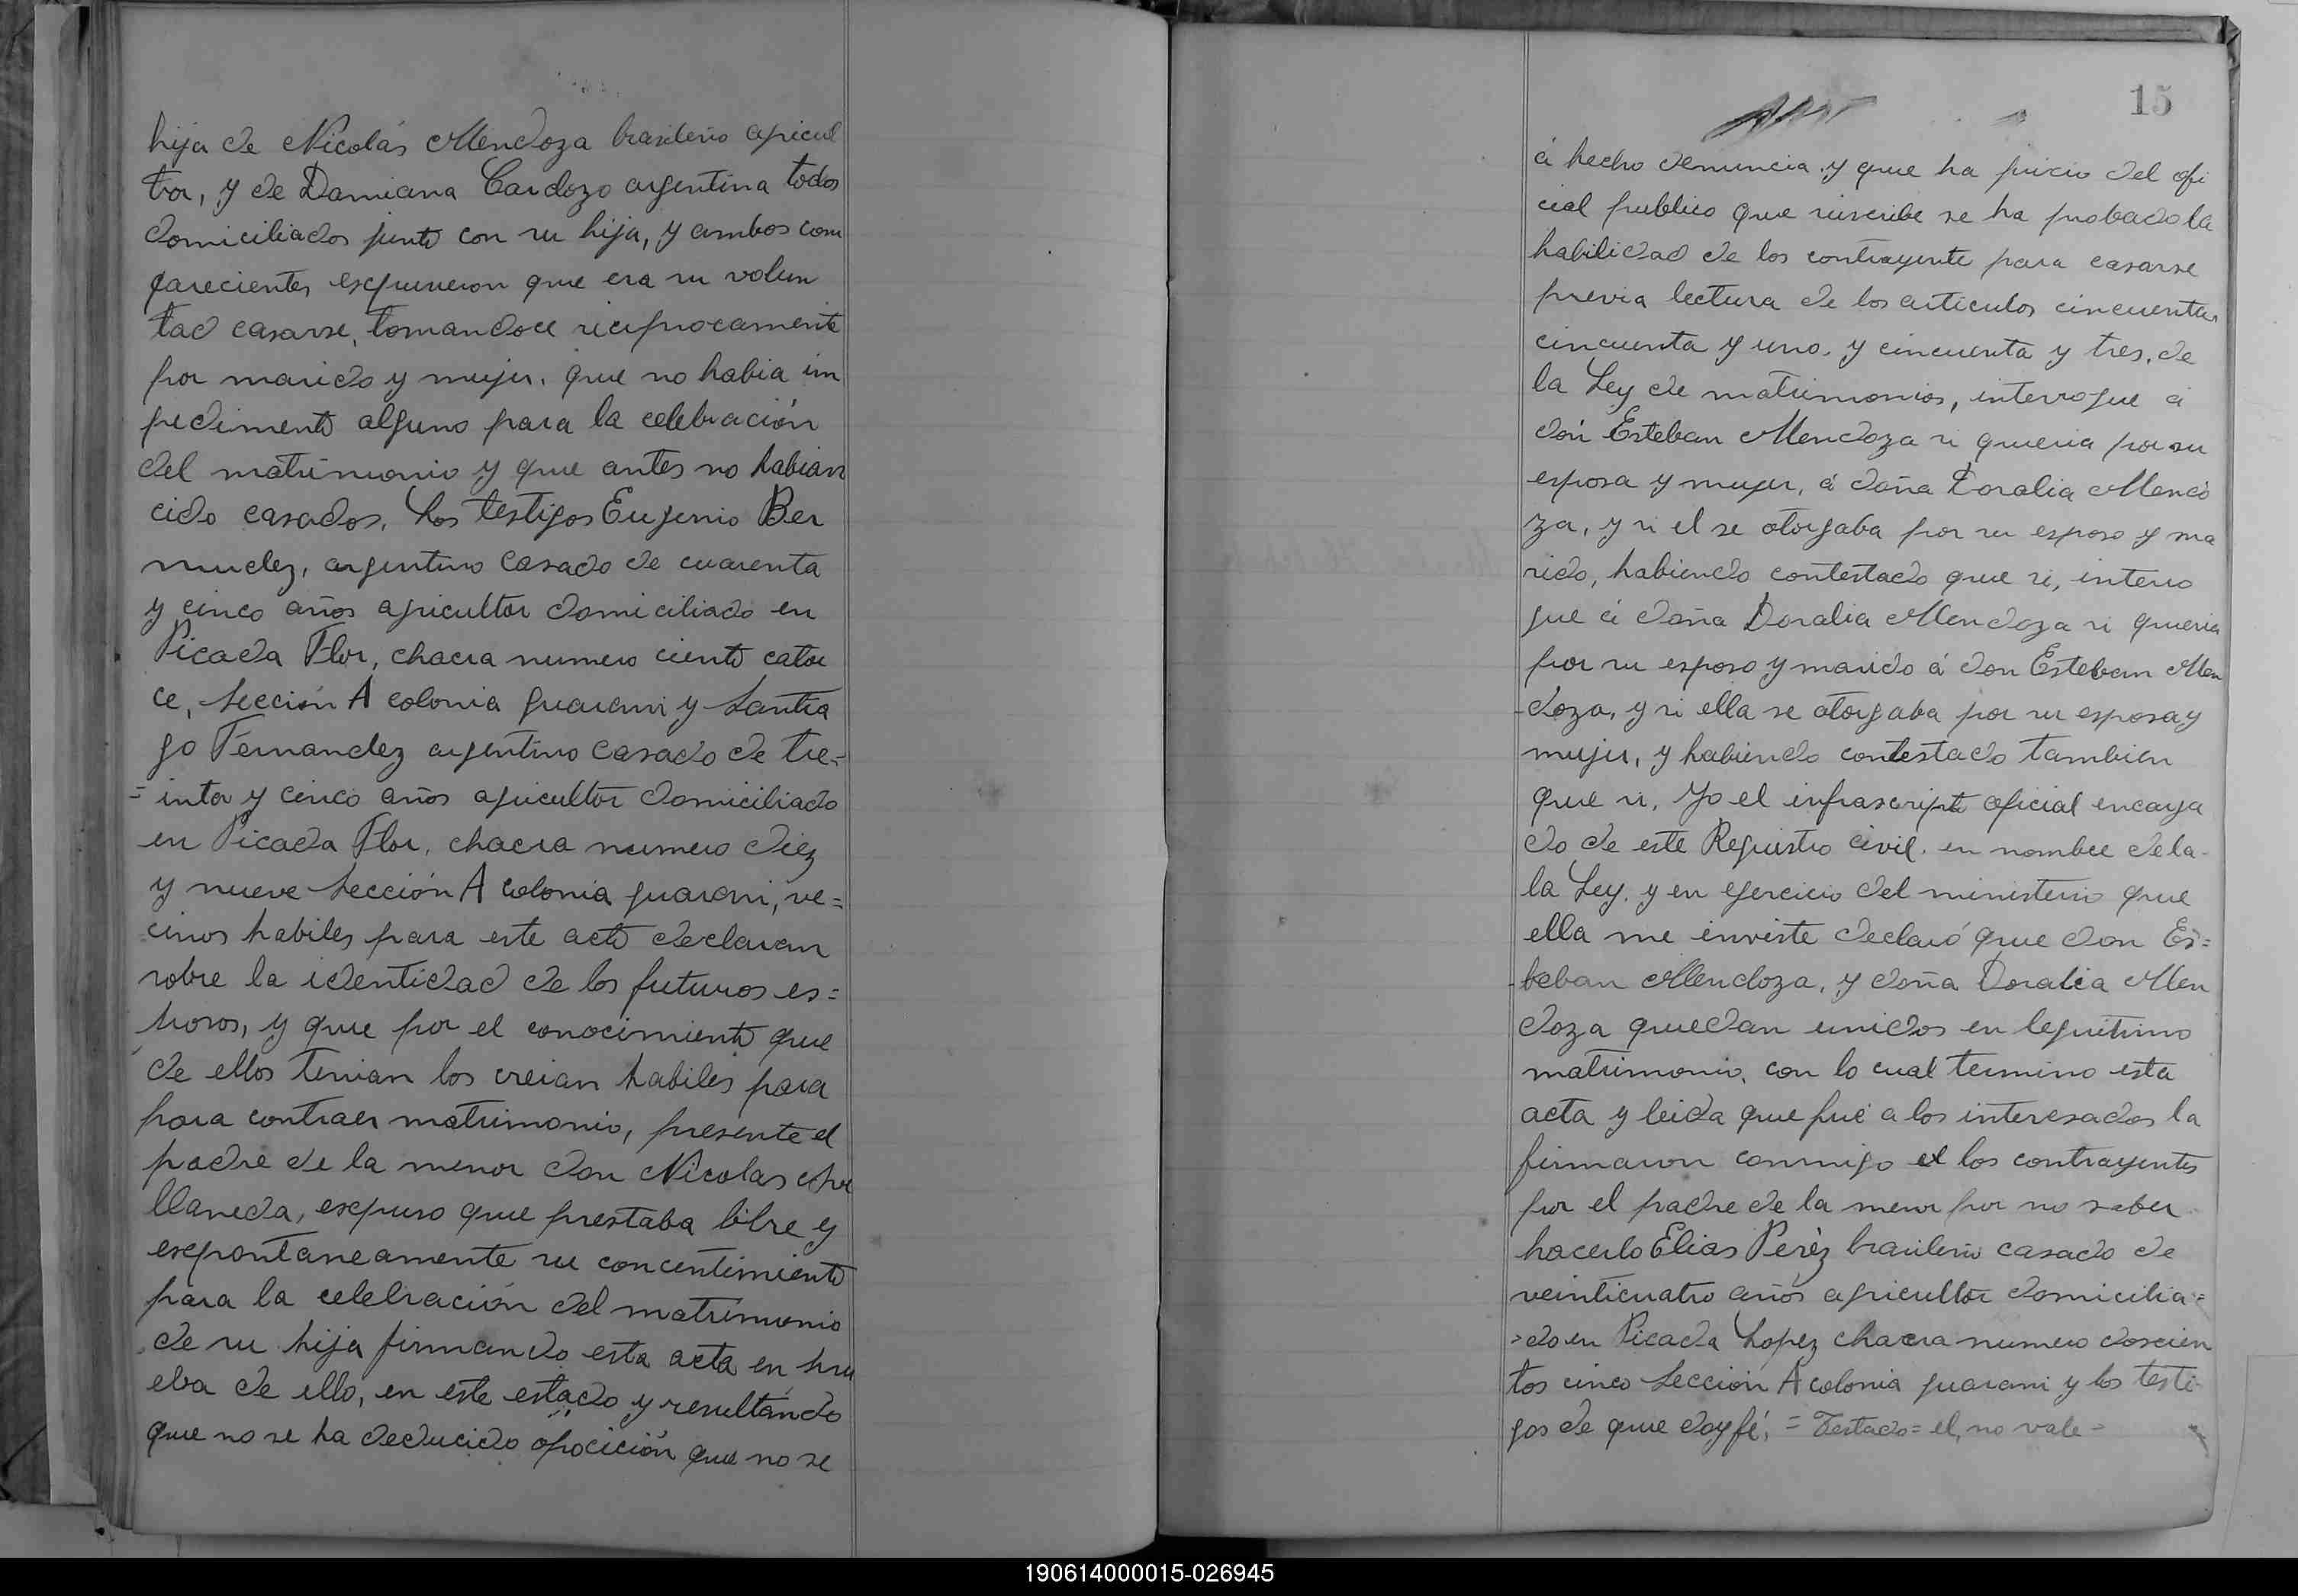 hija de Nicolás Mendoza brasileño agricul
tor, y de Damiana Cardozo argentina todos
domiciliados junto con su hija, y ambos com
parecientes expusieron que era su volun
tad casarse, tomandoce reciprocamente
por marido y mujer, que no habia im
pedimento alguno para la celebración
del matrimonio y que antes no habian
cido casados. Los testigos Eugenio Ber
mudez, argentino casado de cuarenta
y cinco años agricultor domiciliado en
Picada Flor, chacra numero ciento cator
ce, Sección A colonia guarani y Santia
go Fernandez argentino casado de tre=
=inta y cinco años agricultor domiciliado
en Picada Flor, chacra numero diez
y nueve Sección A colonia guarani, ve=
cinos habiles para este acto declaran
sobre la identidad de los futuros es=
posos, y que por el conocimiento que
de ellos tenian los creian habiles para
para contraer matrimonio, presente el
padre de la menor don Nicolas
llaneda, expuso que prestaba libre y
expontaneamente su concentimiento
para la celebración del matrimonio
de su hija firmando esta acta en pru
eba de ello, en este estado y resultando
que no se ha deducido opocición que no se
15
á hecho denuncia y que ha juicio del ofi
cial publico que suscribe se ha probado la
habilidad de los contrayente para casarse
previa lectura de los articulos cincuenta
cincuenta y uno, y cincuenta y tres, de
la Ley de matrimonios, interrogue á
dón Esteban Mendoza si queria por su
esposa y mujer, á doña Doralia Mendo
za, y si el se otorgaba por su esposo y ma
rido, habiendo contestado que si, interro
gue á doña Doralia Mendoza si queria
por su esposo y marido á don Esteban Men
-doza, y si ella se otorgaba por su esposa y
mujer, y habiendo contestado tambien
que si, Yo el infrascripto oficial encarga
do de este Registro civil, en nombre de la-
la Ley, y en ejercicio del ministerio que
ella me inviste declaró que don Es=
teban Mendoza, y doña Doralia Men
doza quedan unidos en legitimo
matrimonio, con lo cual termino esta
acta y leida que fué a los interesados la
firmaron conmigo el los contrayentes
por el padre de la menor por no saber
hacerlo Elias Peréz brasileño casado de
veinticuatro años agricultor domicilia=
=do en Picada Lopez chacra numero doscien
tos cinco Sección A colonia guarani y los testi-
gos de que doy fé, = Testado = el, no vale =
190614000015-026945